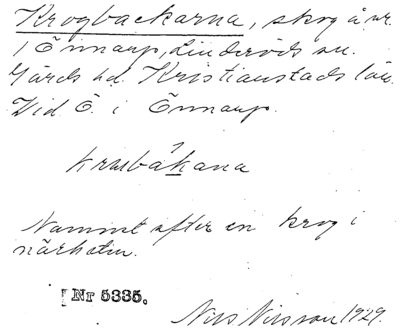 Krogbackarna, skog å nr.
1 Önnarp, Linderöds sn.
Gärds hd. Kristianstads län.
Vid Ö. i Önnarp.
krwbákana
Namnet efter en krog i
närheten.
Nr 5335.
Nils Nilsson 1929.